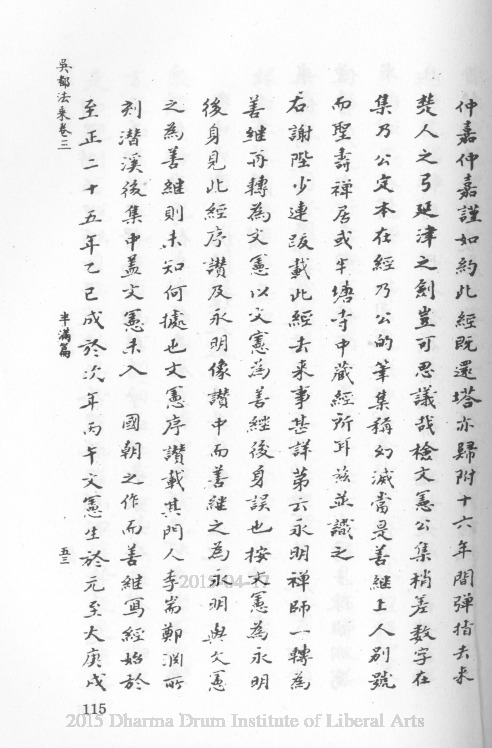 仲嘉仲嘉謹如約此經既還塔亦歸附十六年間彈指去來
焚人之弓延津之劍豈可思議哉檢文憲公集稍差數字在
集乃公定本在經乃公的筆集稱幻滅當是善繼上人別號
而聖壽禪居或半塘寺中藏經所耳茲並識之
右謝陛少連跋載此經去來事甚詳第云永明禪師一轉為
善繼再轉為文憲以文憲為善繼後身誤也按文憲為永明
後身見此經序讚及永明像讚中而善繼之為永明與文憲
之為善繼則未知何據也文憲序讚載其門人李耑鄭淵所
刻潛溪後集中蓋文憲未入 國朝之作而善繼寫經始於
至正二十五年乙巳成於次年丙午文憲生於元至大庚戌
吳都法乘卷三 半滿篇 五三
115
2015-04-27
2015 Dharma Drum Institute of Liberal Arts